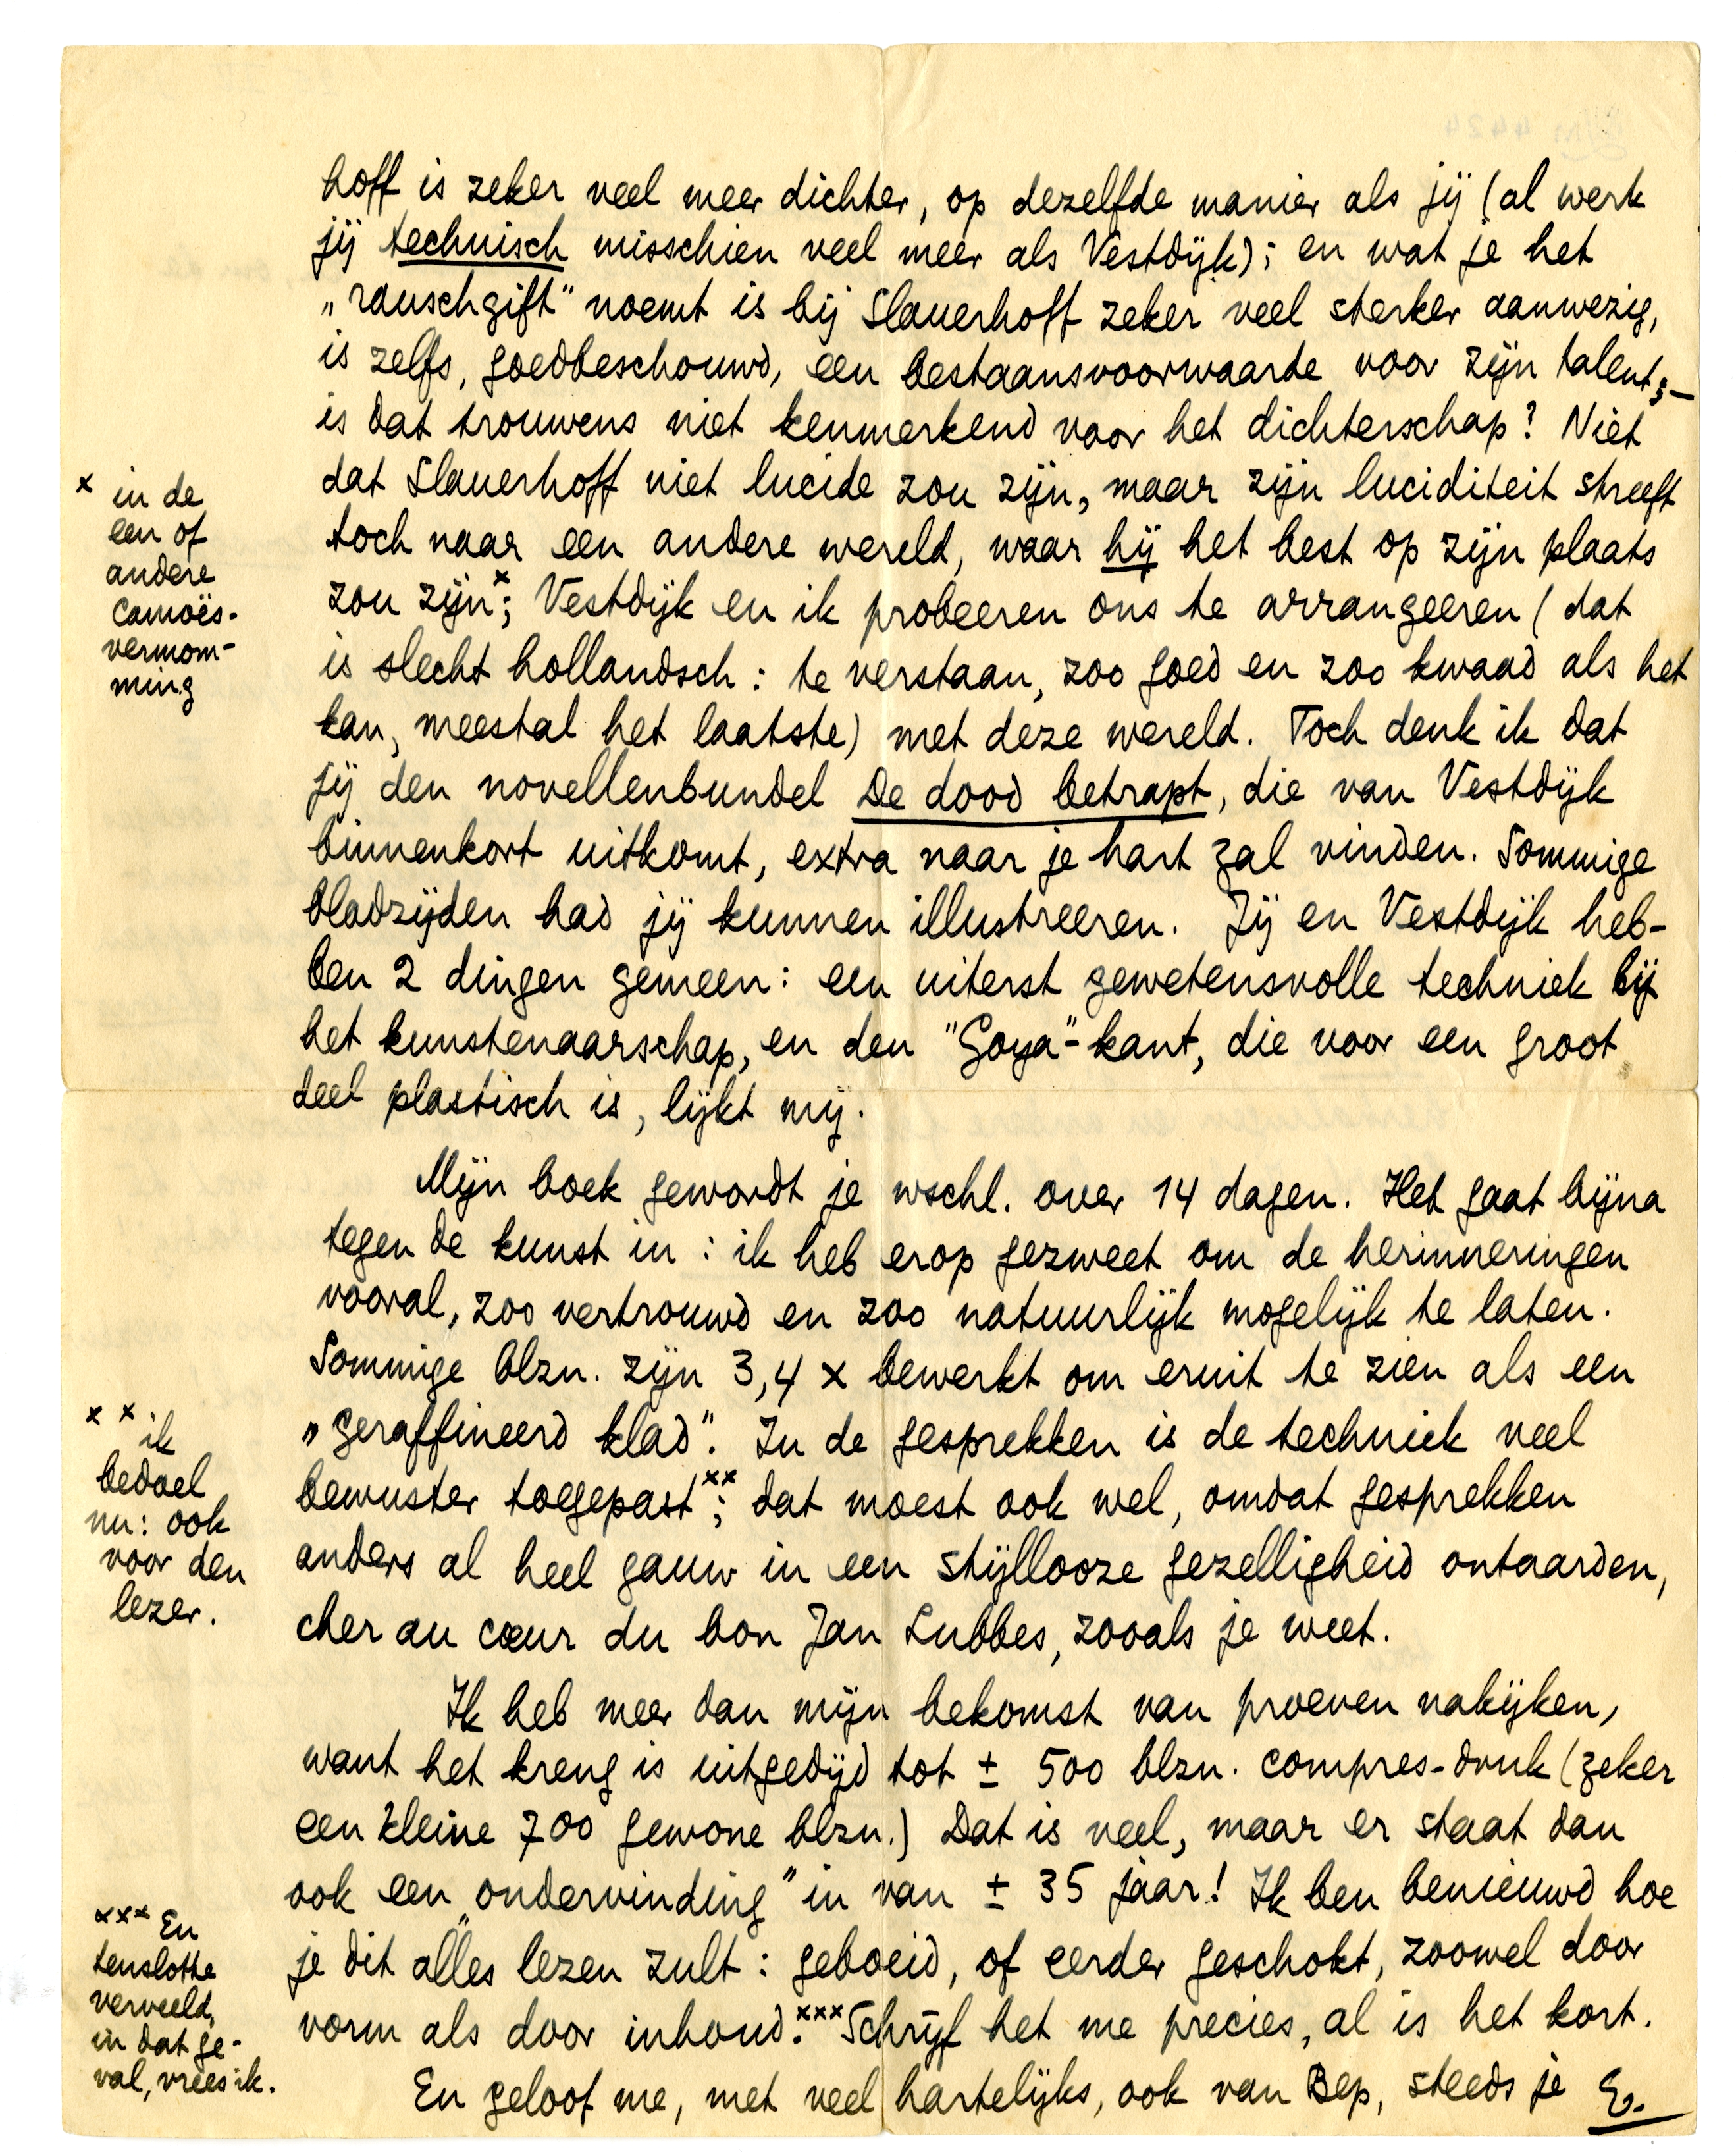 hoff is zeker veel meer dichter, op dezelfde manier als jij (al werk
jij technisch misschien veel meer als Vestdijk); en wat je het
„rauschgift" noemt is bij Slauerhoff zeker veel sterker aanwezig,
is zelfs, goedbeschouwd, een bestaansvoorwaarde voor zijn talent; –
is dat trouwens niet kenmerkend voor het dichterschap? Niet
dat Slauerhoff niet lucide zou zijn, maar zijn luciditeit streeft
toch naar een andere wereld, waar hij het best op zijn plaats
zou zijn x; Vestdijk en ik probeeren ons te arrangeeren (dat
is slecht hollandsch: te verstaan, zoo goed en zoo kwaad als het
kan, meestal het laatste) met deze wereld. Toch denk ik dat
jij den novellenbundel De dood betrapt, die van Vestdijk
binnenkort uitkomt, extra naar je hart zal vinden. Sommige
bladzijden had jij kunnen illustreeren. Jij en Vestdijk heb-
ben 2 dingen gemeen: een uiterst gewetensvolle techniek bij
het kunstenaarschap, en den "Goya"-kant, die voor een groot
deel plastisch is, lijkt mij.
x in de
een of
andere
Camoës-
vermom-
ming
Mijn boek gewordt je wschl. over 14 dagen. Het gaat bijna
tegen de kunst in: ik heb erop gezweet om de herinneringen
vooral, zoo vertrouwd en zoo natuurlijk mogelijk te laten.
Sommige blzn. zijn 3, 4 x bewerkt om eruit te zien als een
„geraffineerd klad". In de gesprekken is de techniek veel
bewuster toegepast xx; dat moest ook wel, omdat gesprekken
anders al heel gauw in een stijllooze gezelligheid ontaarden,
cher au cœur du bon Jan Lubbes, zooals je weet.
x x ik
bedoel
nu: ook
voor den
lezer.
Ik heb meer dan mijn bekomst van proeven nakijken,
want het kreng is uitgedijd tot ± 500 blzn. compres-druk (zeker
een kleine 700 gewone blzn.) Dat is veel, maar er staat dan
ook een „ondervinding" in van ± 35 jaar! Ik ben benieuwd hoe
je dit alles lezen zult: geboeid, of eerder geschokt, zoowel door
vorm als door inhoud. xxx Schrijf het me precies, al is het kort.
xxx En
tenslotte
verveeld,
in dat ge-
val, vrees ik.
En geloof me, met veel hartelijks, ook van Bep, steeds je E.